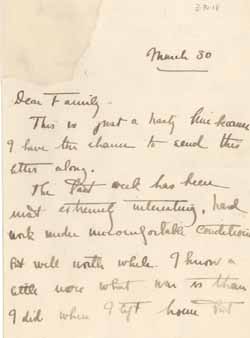 3-30-18
March 30
Dear Family -
This is just a hasty line because
I have this chance to send this
letter along.
The Past week has been
most extremely interesting, hard
work under uncomfortable conditions
But well worth while. I know a
little more what war is than
I did when I left home But